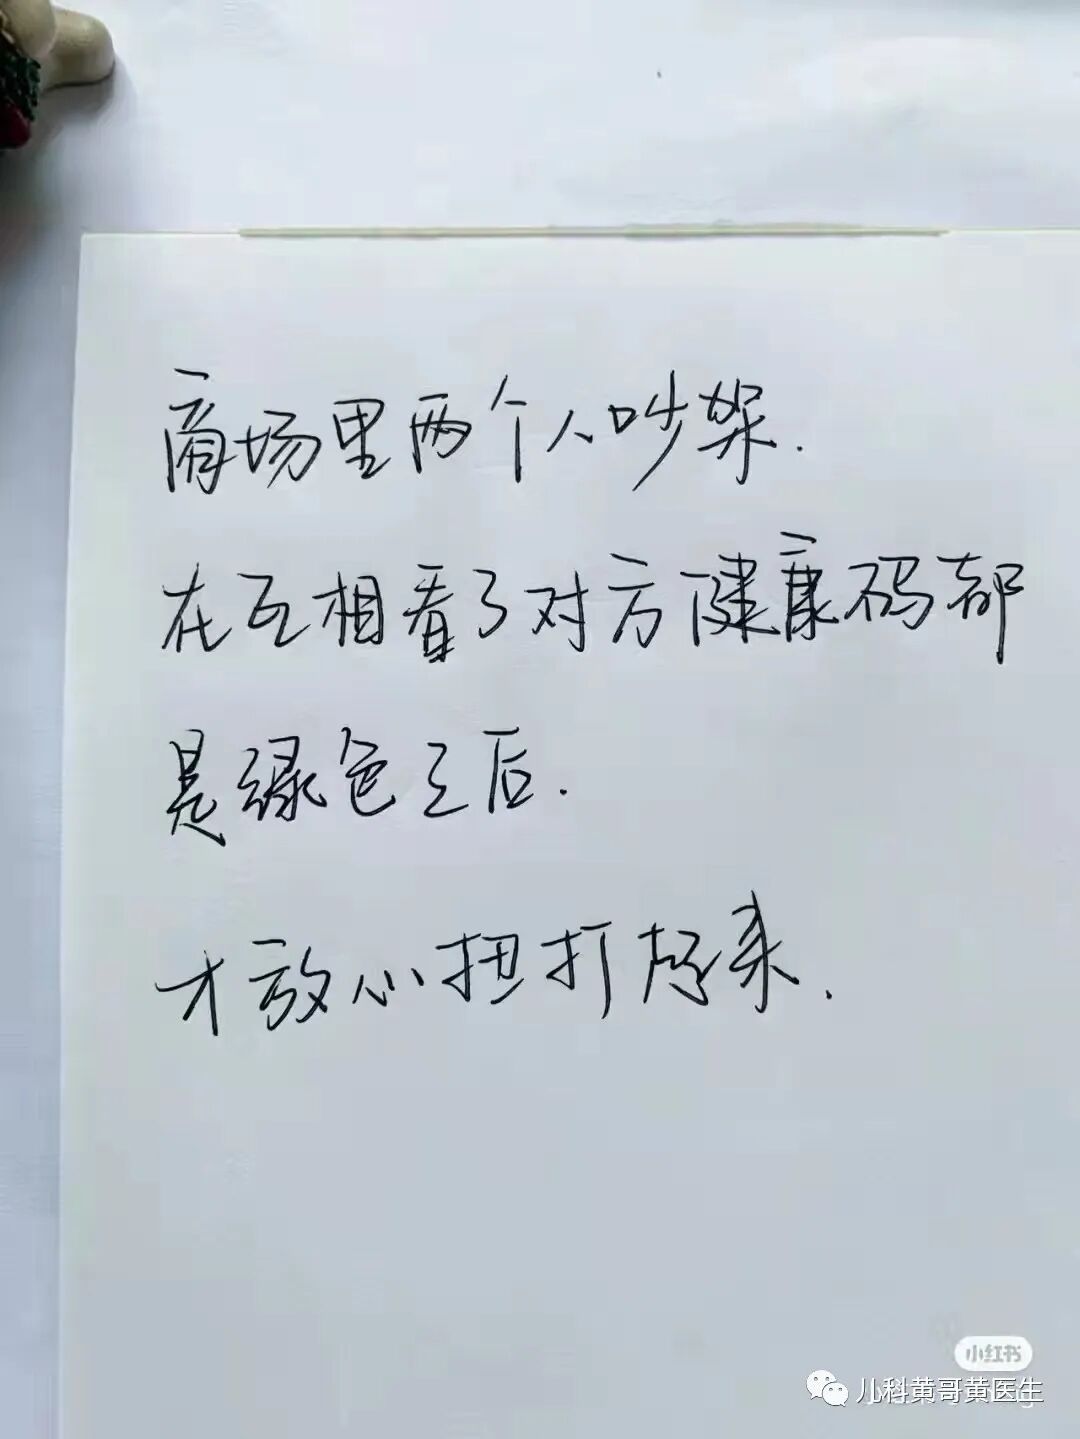 商场里两个人吵架.
在互相看了对方健康码都
是绿色之后.
才放心扭打起来.
小红书
儿科黄哥黄医生